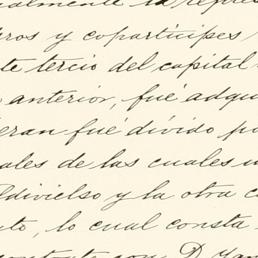 almente la repres
ros y copartícipes
te tercio del capital
anterior, fué adqu
eran fué dívido po
ales de las cuales u
ldivielso y la otra c
to, lo cual consta